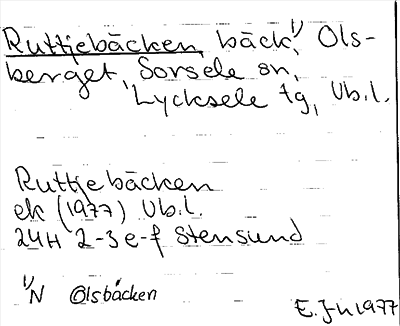 Ruttjebäcken, bäck,¹⁾ Ols-
berget, Sorsele sn,
Lycksele tg, Vb.l.
Ruttjebäcken
ek (1977) Vb.l.
24H 2-3 e-f Stensund
¹⁾N Olsbäcken
E. Jn 1977